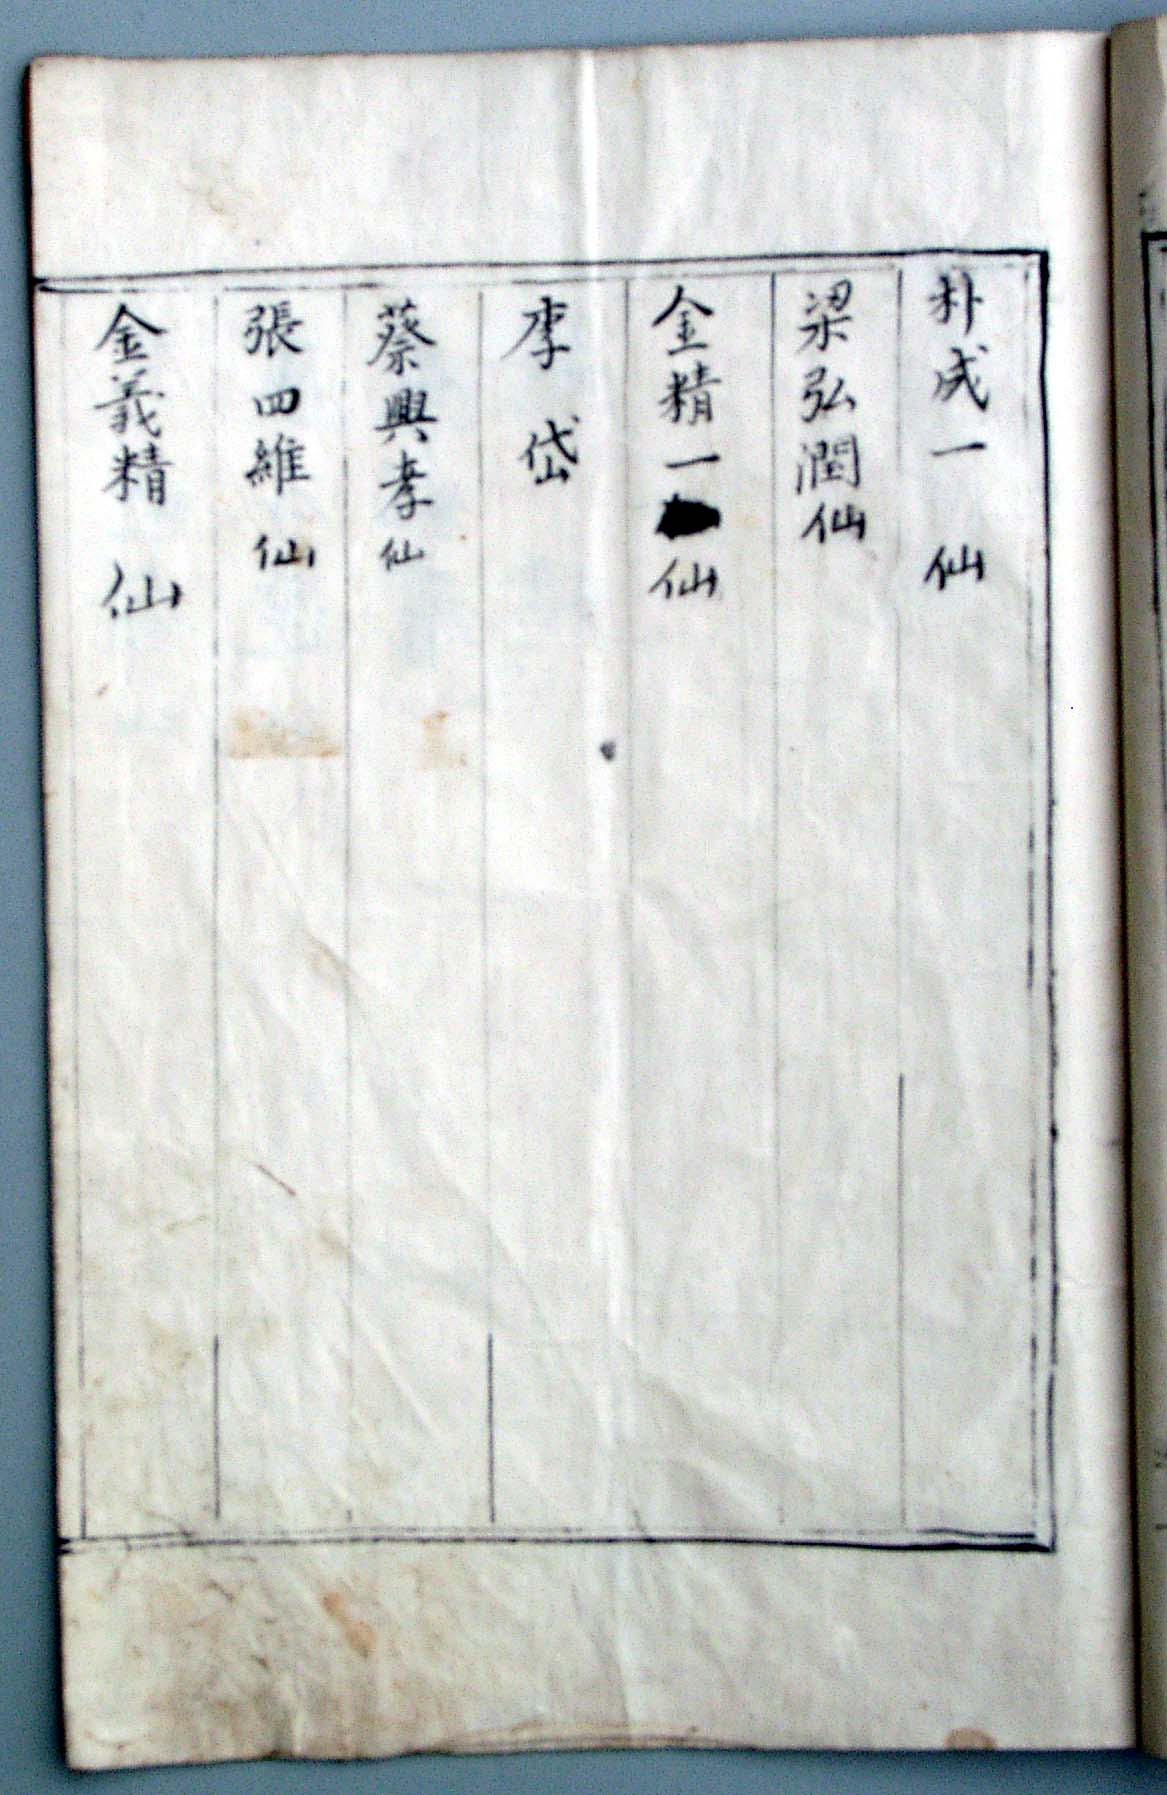 朴成一 仙
梁弘潤仙
金精一仙
李岱
蔡興孝仙
張四維 仙
金義精 仙